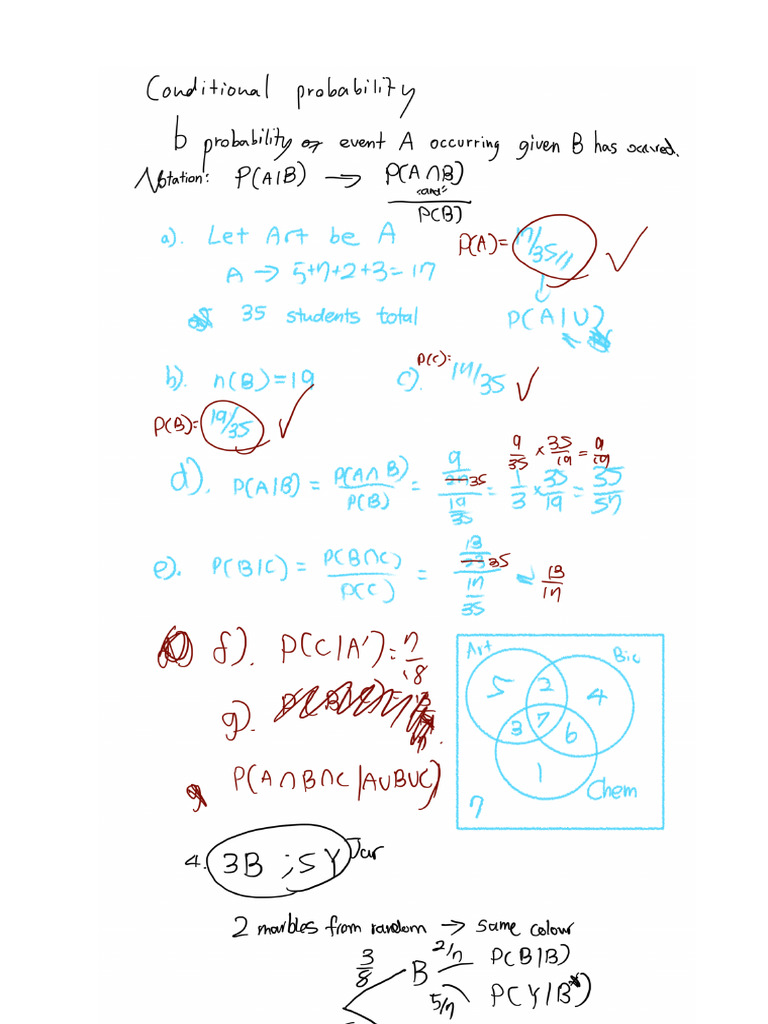 Conditional probability
b probability of event A occurring given B has occured.
Notation: P(A|B) → P(A∩B)
"and"
P(B)
a). Let Art be A P(A)= 17/35 //
A → 5+7+2+3=17
35 students total P(A|U)
b). n(B)=19 c). P(C): 17/35
P(B)= 19/35
d). P(A|B) = P(A∩B)/P(B) = 9/35 / 19/35 = 1/3 × 35/19 = 35/57
9/35 × 35/19 = 9/19
e). P(B|C) = P(B∩C)/P(C) = 13/35 / 17/35 = 13/17
f). P(C|A') = 7/18
Art Bio
5 2 4
g).
3 7 6
P(A∩B∩C|A∪B∪C)
1
Chem
7
4. 3B ; 5Y Jar
2 marbles from random → same colour
3/8 B 2/7 P(B|B)
5/7 P(Y|B)